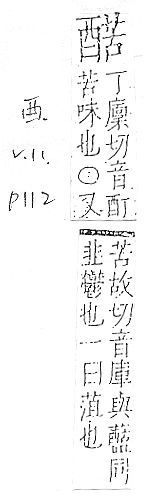 丁廩切音酊
苦味也○又
苦故切音庫與同
韭鬱也一曰菹也
酉.
v.11.
p112